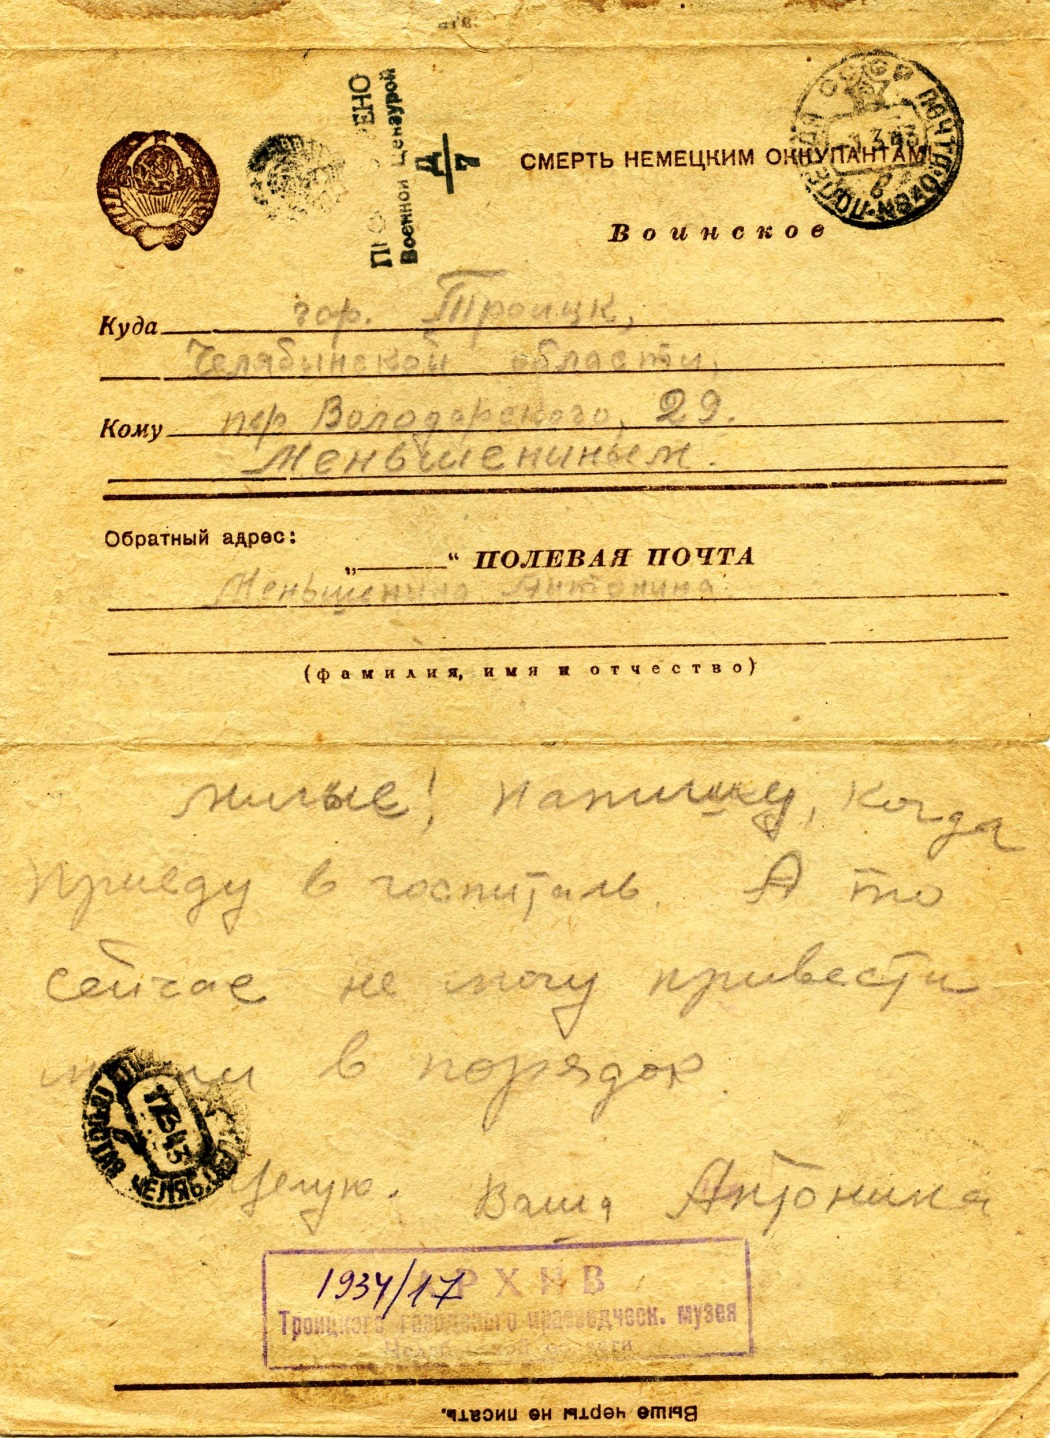 ПРОВЕРЕНО
Военной Цензурой
Д/7
СМЕРТЬ НЕМЕЦКИМ ОККУПАНТАМ!
СССР ПОЧТА
Воинское
Куда гор. Троицк,
Челябинской области,
Кому пер Володарского, 29.
Меньшениным.
Обратный адрес:
„ “ ПОЛЕВАЯ ПОЧТА
Меньшенина Антонина.
(фамилия, имя и отчество)
Милые! Напишу, когда
приеду в госпиталь. А то
сейчас не могу привести
в порядок
ЧЕЛЯБ
Целую. Ваша Антонина
1934/17
АРХИВ
Троицкого городского краеведческ. музея
Челябинской области
Выше черты не писать.